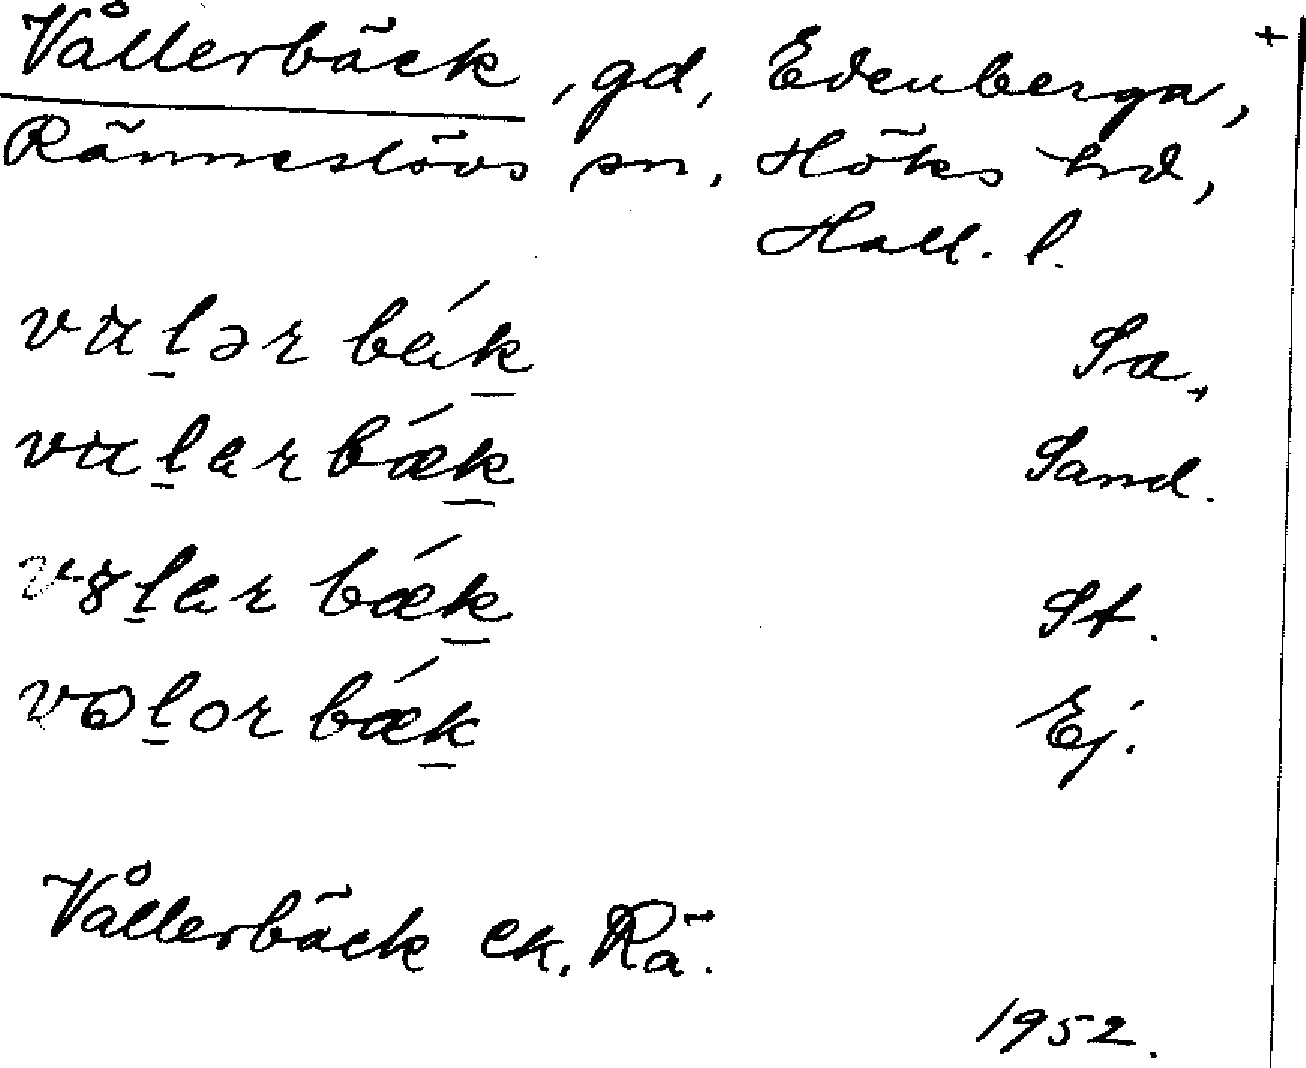 Vållerbäck, gd, Edenberga, +
Ränneslövs sn, Höks hrd,
Hall. l.
vɯ̈l̲ər bǽk̲ Sa.
vɯ̈l̲ar bǽk̲ Sand.
vɤl̲ar bǽk̲ St.
vɷl̲or bǽk̲ Ej.
Vållerbäck ek. Rä.
1952.